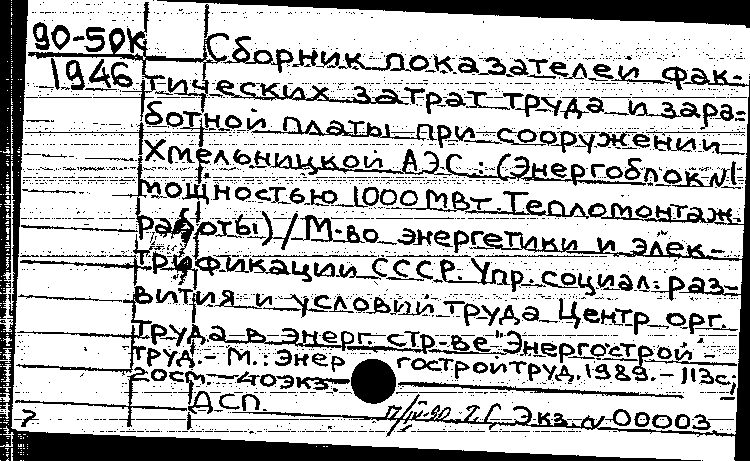 90-50К Сборник показателей фак-
1946 тических затрат труда и зара=
ботной платы при сооружении
Хмельницкой АЭС : (Энергоблок №1
мощностью 1000 МВт. Тепломонтаж.
работы) / М-во энергетики и элек-
трификации СССР. Упр. социал. раз-
вития и условий труда Центр орг.
труда в энерг. стр-ве "Энергострой-
труд. - М. : Энергостройтруд, 1989. - 113с.;
20см. - 40экз. -
ДСП. Экз. № 00003